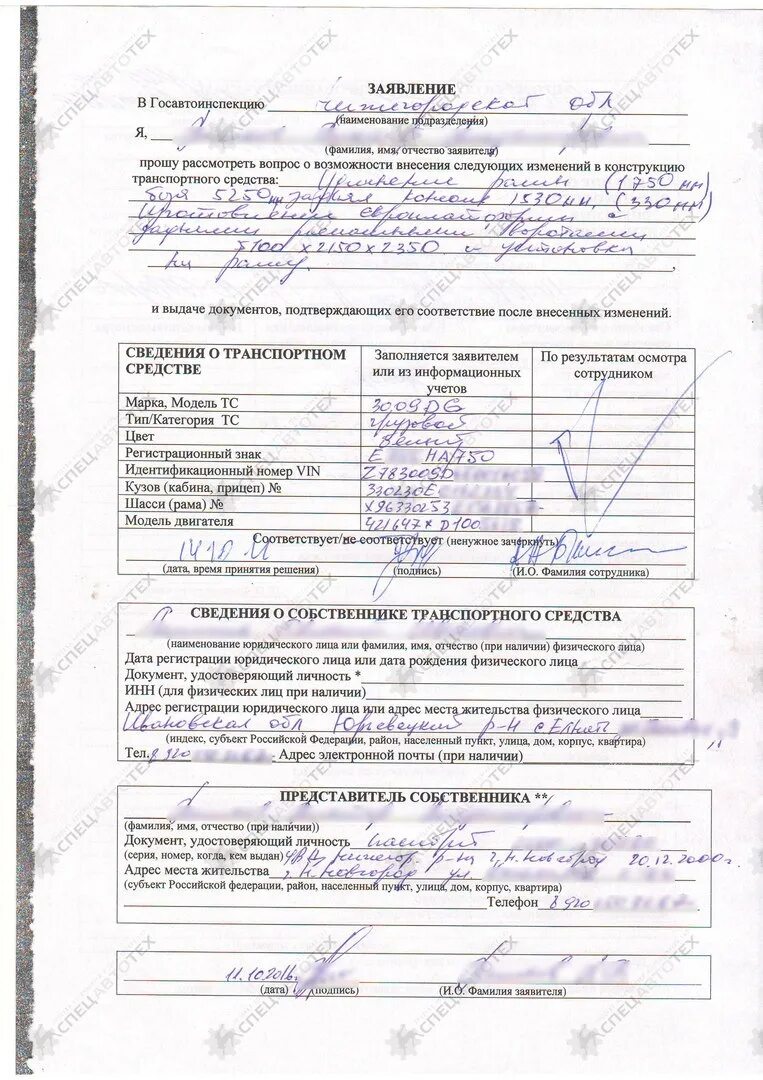 ЗАЯВЛЕНИЕ
В Госавтоинспекцию Нижегородской обл
(наименование подразделения)
Я,
(фамилия, имя, отчество заявителя)
прошу рассмотреть вопрос о возможности внесения следующих изменений в конструкцию
транспортного средства: Удлинение рамы (1750 мм)
база 5250 мм задняя консоль 1530 мм, (330 мм)
Изготовления европлатформы с
задними распашными воротами
5100 х 2150 х 2350 и установки
на раму.
и выдаче документов, подтверждающих его соответствие после внесенных изменений.
СВЕДЕНИЯ О ТРАНСПОРТНОМ СРЕДСТВЕ
Заполняется заявителем или из информационных учетов
По результатам осмотра сотрудником
Марка, Модель ТС 3009DG
Тип/Категория ТС грузовой
Цвет белый
Регистрационный знак Е НА/750
Идентификационный номер VIN Z783009D
Кузов (кабина, прицеп) № 330230Е
Шасси (рама) № Х96330253
Модель двигателя 421647* D100
Соответствует/не соответствует (ненужное зачеркнуть)
14 10
(дата, время принятия решения) (подпись) (И.О. Фамилия сотрудника)
СВЕДЕНИЯ О СОБСТВЕННИКЕ ТРАНСПОРТНОГО СРЕДСТВА
(наименование юридического лица или фамилия, имя, отчество (при наличии) физического лица)
Дата регистрации юридического лица или дата рождения физического лица
Документ, удостоверяющий личность *
ИНН (для физических лиц при наличии)
Адрес регистрации юридического лица или адрес места жительства физического лица
Ивановская обл Юрьевецкий р-н с Елнать
(индекс, субъект Российской Федерации, район, населенный пункт, улица, дом, корпус, квартира)
Тел. 8 920 Адрес электронной почты (при наличии)
ПРЕДСТАВИТЕЛЬ СОБСТВЕННИКА **
(фамилия, имя, отчество (при наличии))
Документ, удостоверяющий личность паспорт
(серия, номер, когда, кем выдан) УВД нижегор. р-на г. Н. Новгород 20.12.2000г.
Адрес места жительства г. Н. Новгород ул.
(субъект Российской Федерации, район, населенный пункт, улица, дом, корпус, квартира)
Телефон 8 920
11.10.2016г.
(дата) (подпись) (И.О. Фамилия заявителя)
СПЕЦАВТОТЕХ